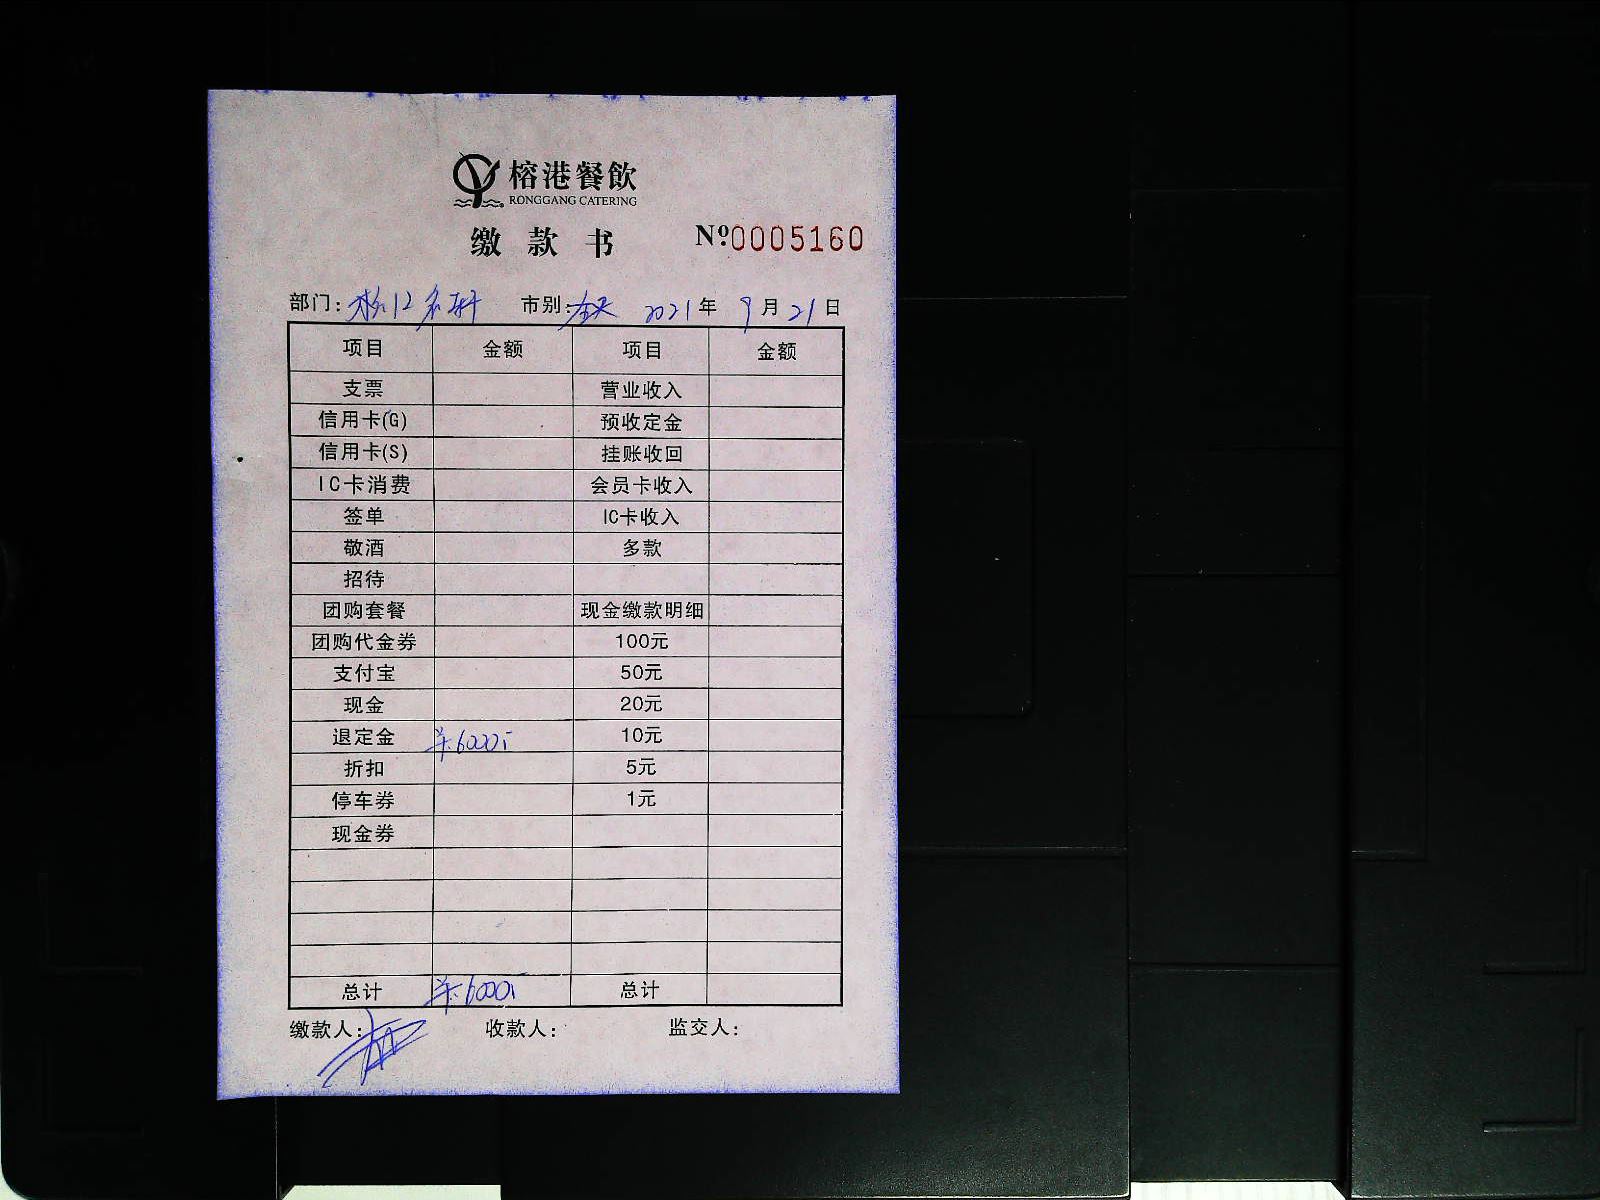 榕港餐飲
RONGGANG CATERING
缴款书 Nº0005160
部门: 市别:全天 2021年9月21日
项目 金额 项目 金额
支票 营业收入
信用卡(G) 预收定金
信用卡(S) 挂账收回
IC卡消费 会员卡收入
签单 IC卡收入
敬酒 多款
招待
团购套餐 现金缴款明细
团购代金券 100元
支付宝 50元
现金 20元
退定金 ¥6000 10元
折扣 5元
停车券 1元
现金券
总计 ¥6000 总计
缴款人: 收款人: 监交人: